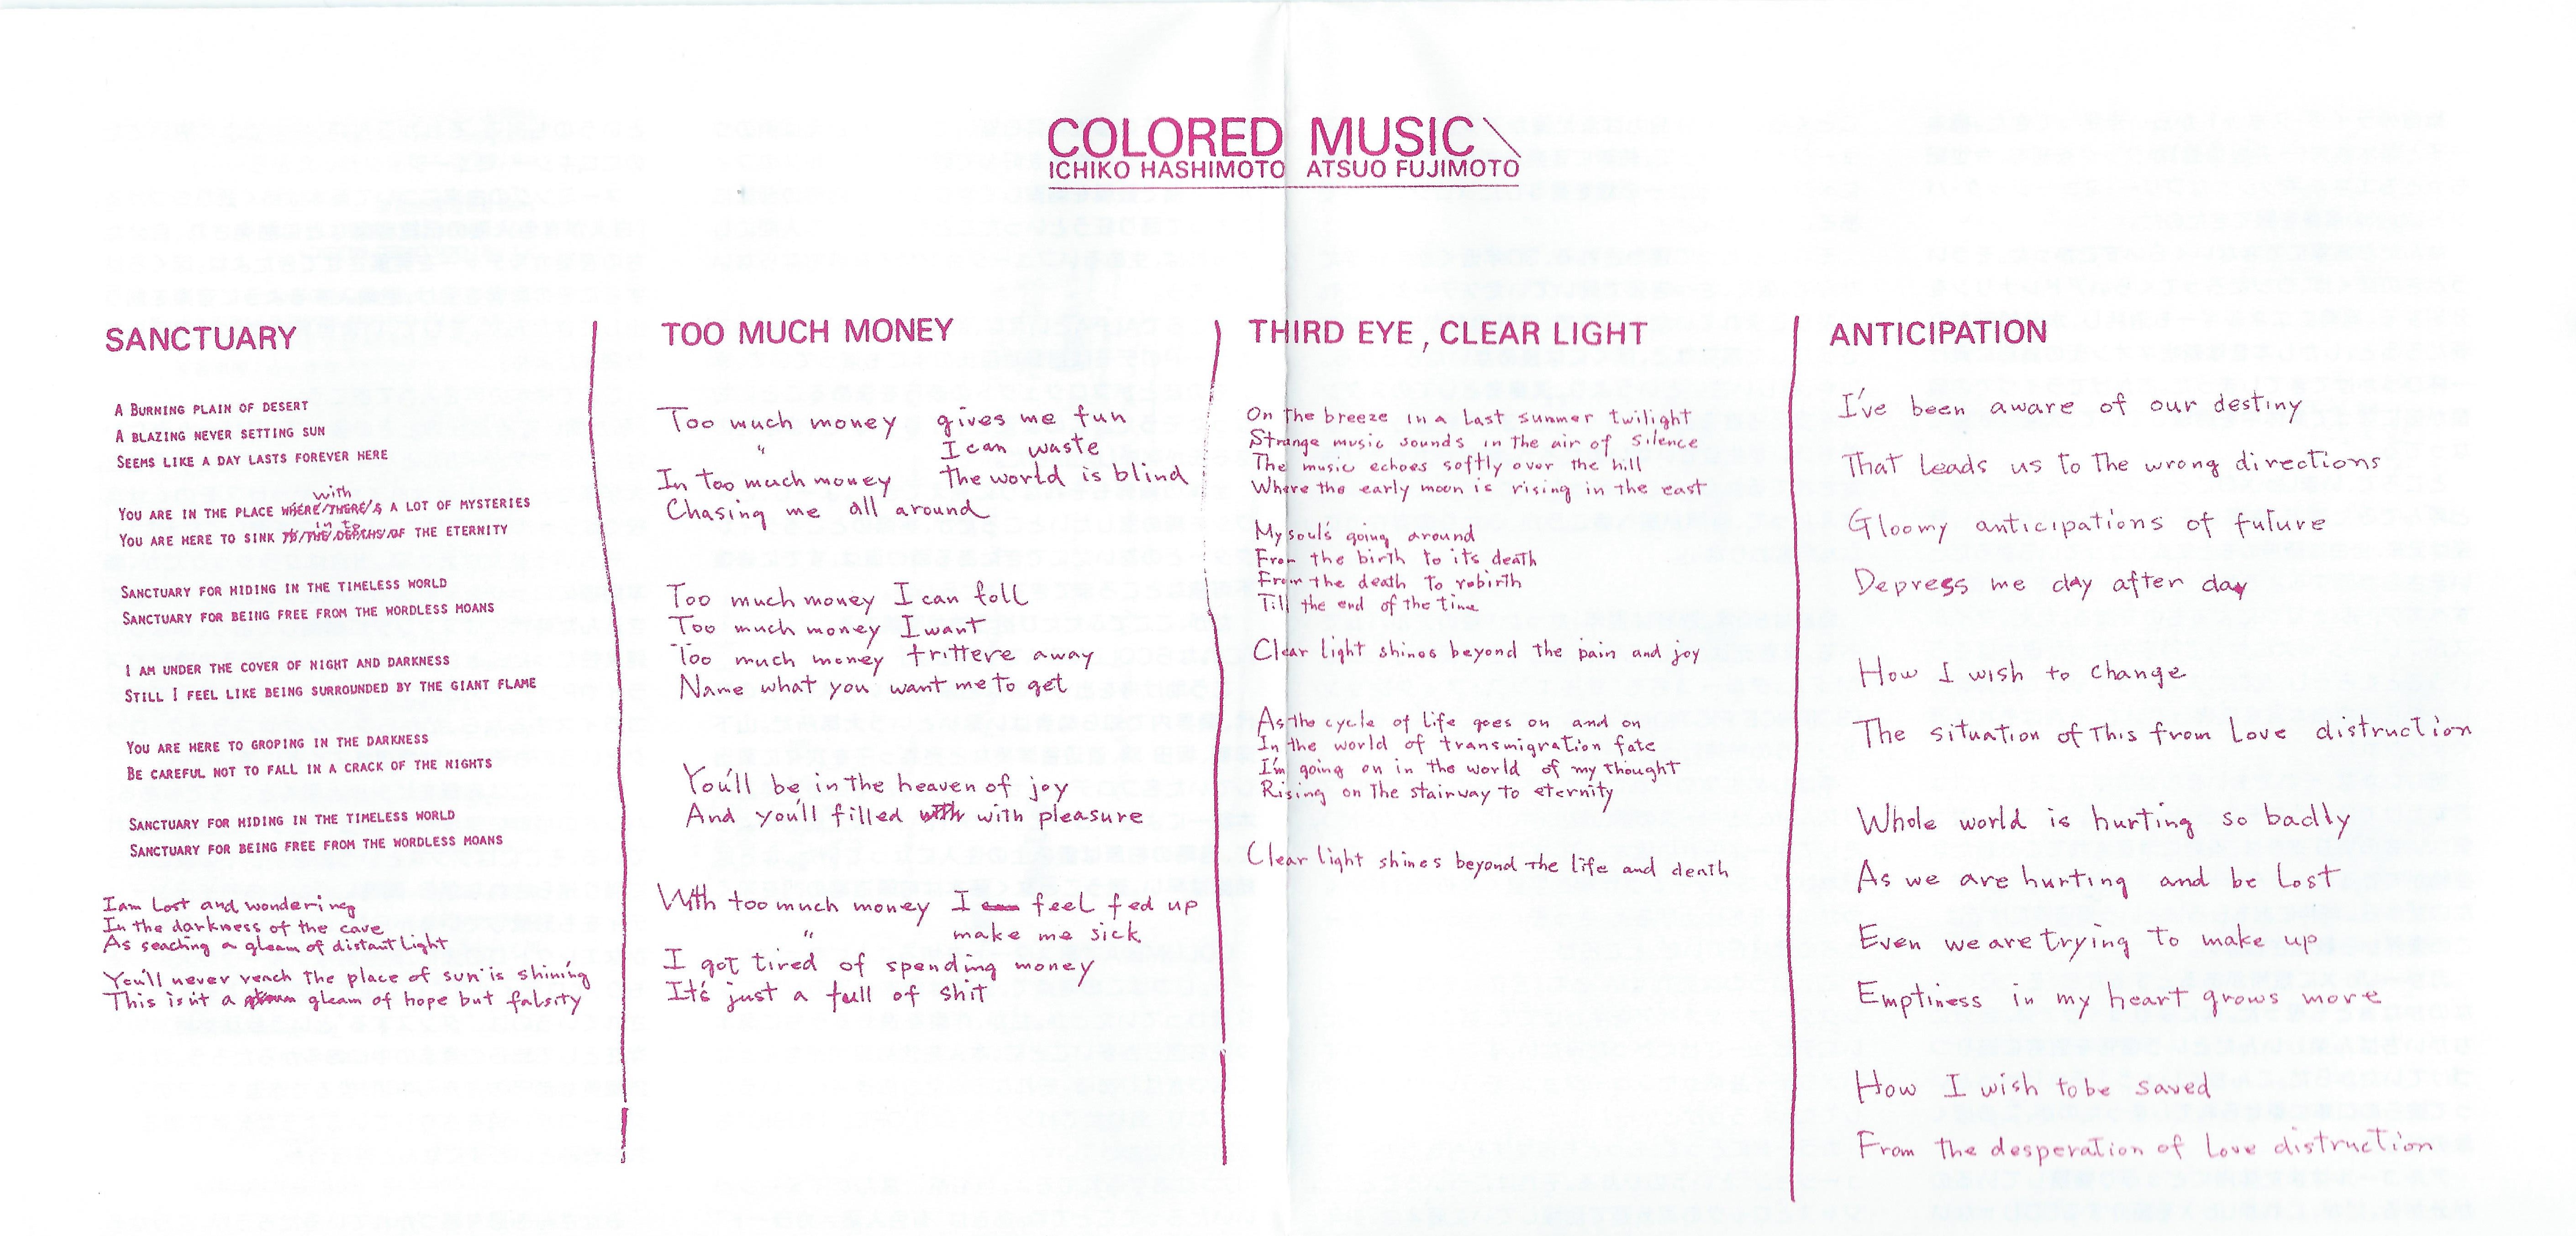 COLORED MUSIC
ICHIKO HASHIMOTO ATSUO FUJIMOTO
SANCTUARY
A BURNING PLAIN OF DESERT
A BLAZING NEVER SETTING SUN
SEEMS LIKE A DAY LASTS FOREVER HERE
with
YOU ARE IN THE PLACE WHERE/THERE'S A LOT OF MYSTERIES
in to
YOU ARE HERE TO SINK TO/THE DEPTHS/OF THE ETERNITY
SANCTUARY FOR HIDING IN THE TIMELESS WORLD
SANCTUARY FOR BEING FREE FROM THE WORDLESS MOANS
I AM UNDER THE COVER OF NIGHT AND DARKNESS
STILL I FEEL LIKE BEING SURROUNDED BY THE GIANT FLAME
YOU ARE HERE TO GROPING IN THE DARKNESS
BE CAREFUL NOT TO FALL IN A CRACK OF THE NIGHTS
SANCTUARY FOR HIDING IN THE TIMELESS WORLD
SANCTUARY FOR BEING FREE FROM THE WORDLESS MOANS
I am Lost and wondering
In the darkness of the cave
As seaching a gleam of distant Light
You'll never reach the place of sun is shining
This isn't a gleam of hope but falsity
TOO MUCH MONEY
Too much money gives me fun
" I can waste
In too much money the world is blind
Chasing me all around
Too much money I can foll
Too much money I want
Too much money frittere away
Name what you want me to get
You'll be in the heaven of joy
And you'll filled with with pleasure
With too much money I feel fed up
" make me sick
I got tired of spending money
It's just a full of shit
THIRD EYE, CLEAR LIGHT
On the breeze in a Last summer twilight
Strange music sounds in the air of silence
The music echoes softly over the hill
Where the early moon is rising in the east
My soul's going around
From the birth to its death
From the death to robirth
Till the end of the time
Clear light shines beyond the pain and joy
As the cycle of life goes on and on
In the world of transmigration fate
I'm going on in the world of my thought
Rising on the stairway to eternity
Clear light shines beyond the life and death
ANTICIPATION
I've been aware of our destiny
That leads us to the wrong directions
Gloomy anticipations of future
Depress me day after day
How I wish to change
The situation of This from Love distruction
Whole world is hurting so badly
As we are hurting and be Lost
Even we are trying to make up
Emptiness in my heart grows more
How I wish to be saved
From the desperation of Love distruction